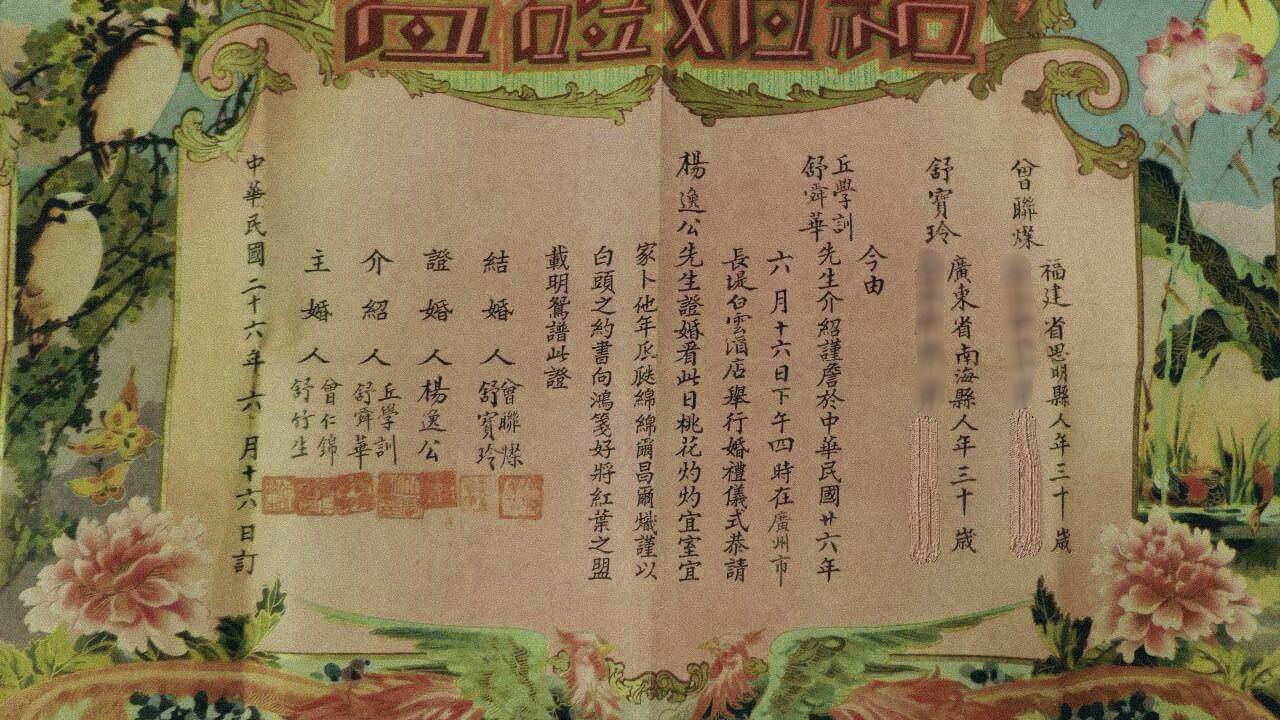 結婚證書
曾聯煠
福建省思明縣人年三十歲
舒寶玲
廣東省南海縣人年三十歲
今由
丘學訓
舒舜華
先生介紹謹詹於中華民國廿六年
六月十六日下午四時在廣州市
長堤白雲酒店舉行婚禮儀式恭請
楊逸公先生證婚看此日桃花灼灼宜室宜
家卜他年瓜瓞綿綿爾昌爾熾謹以
白頭之約書向鴻箋好將紅葉之盟
載明鴛譜此證
結婚人
曾聯煠
舒寶玲
證婚人楊逸公
介紹人
丘學訓
舒舜華
主婚人
曾仁錦
舒竹生
中華民國二十六年六月十六日訂